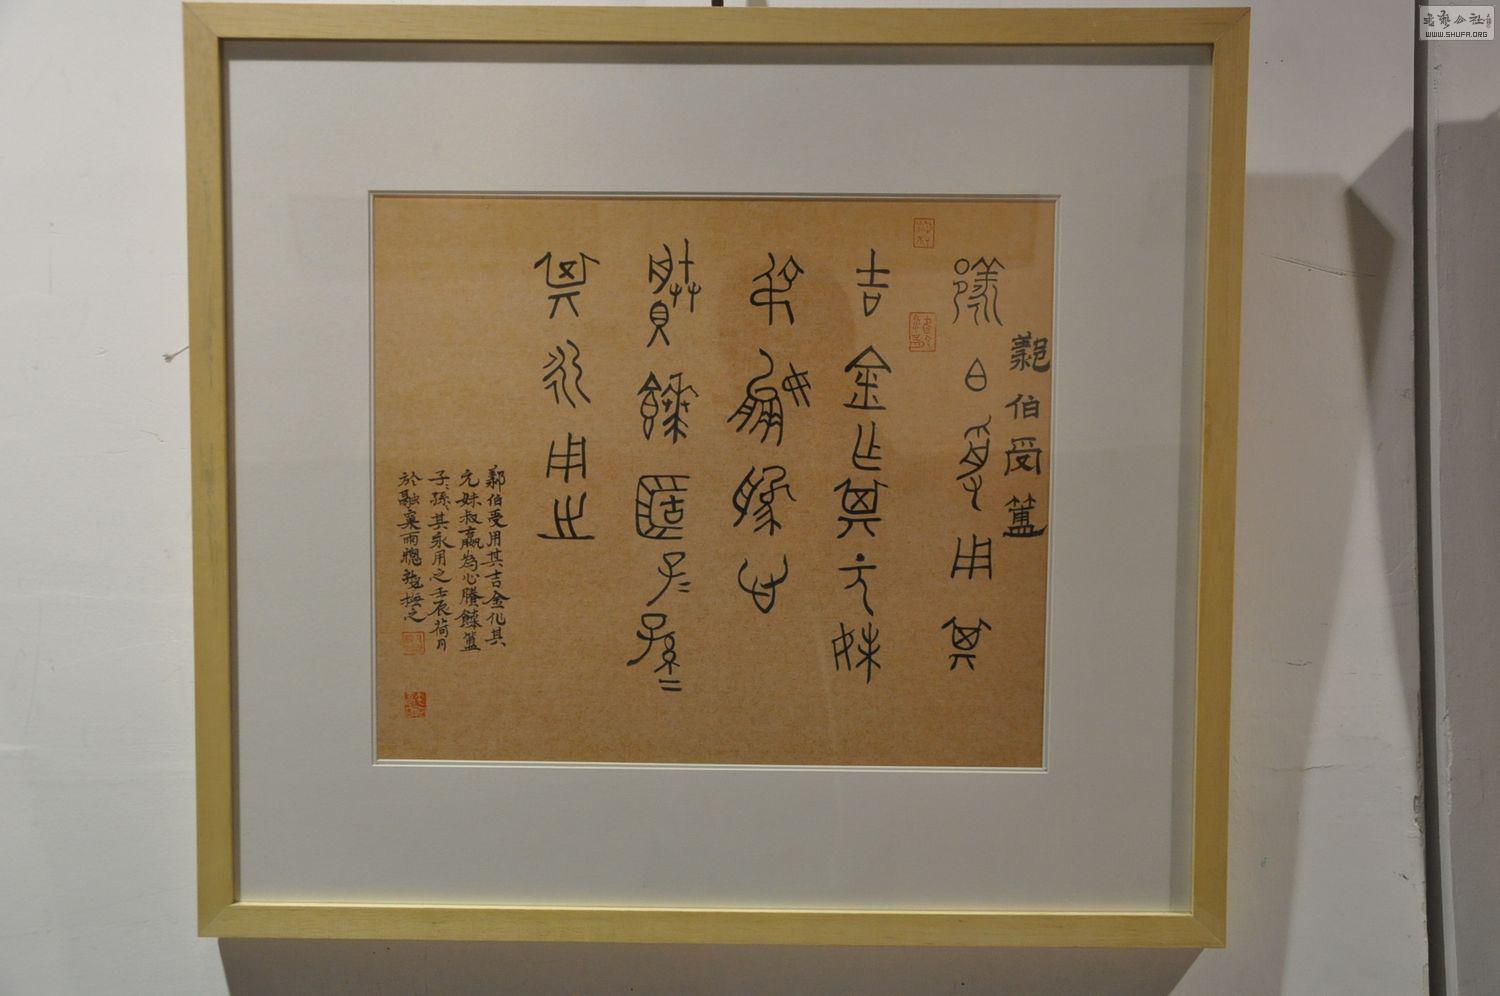 鄴伯受簠
鄴伯受用其
吉金乍其元妹
叔嬴為心
媵饙簠子=孫=
其永用之
鄴伯受用其吉金化其
元妹叔嬴為心賸饙簠
子、孫、其永用之壬辰荷月
於融巢雨牕撫之
书艺公社
WWW.SHUFA.ORG